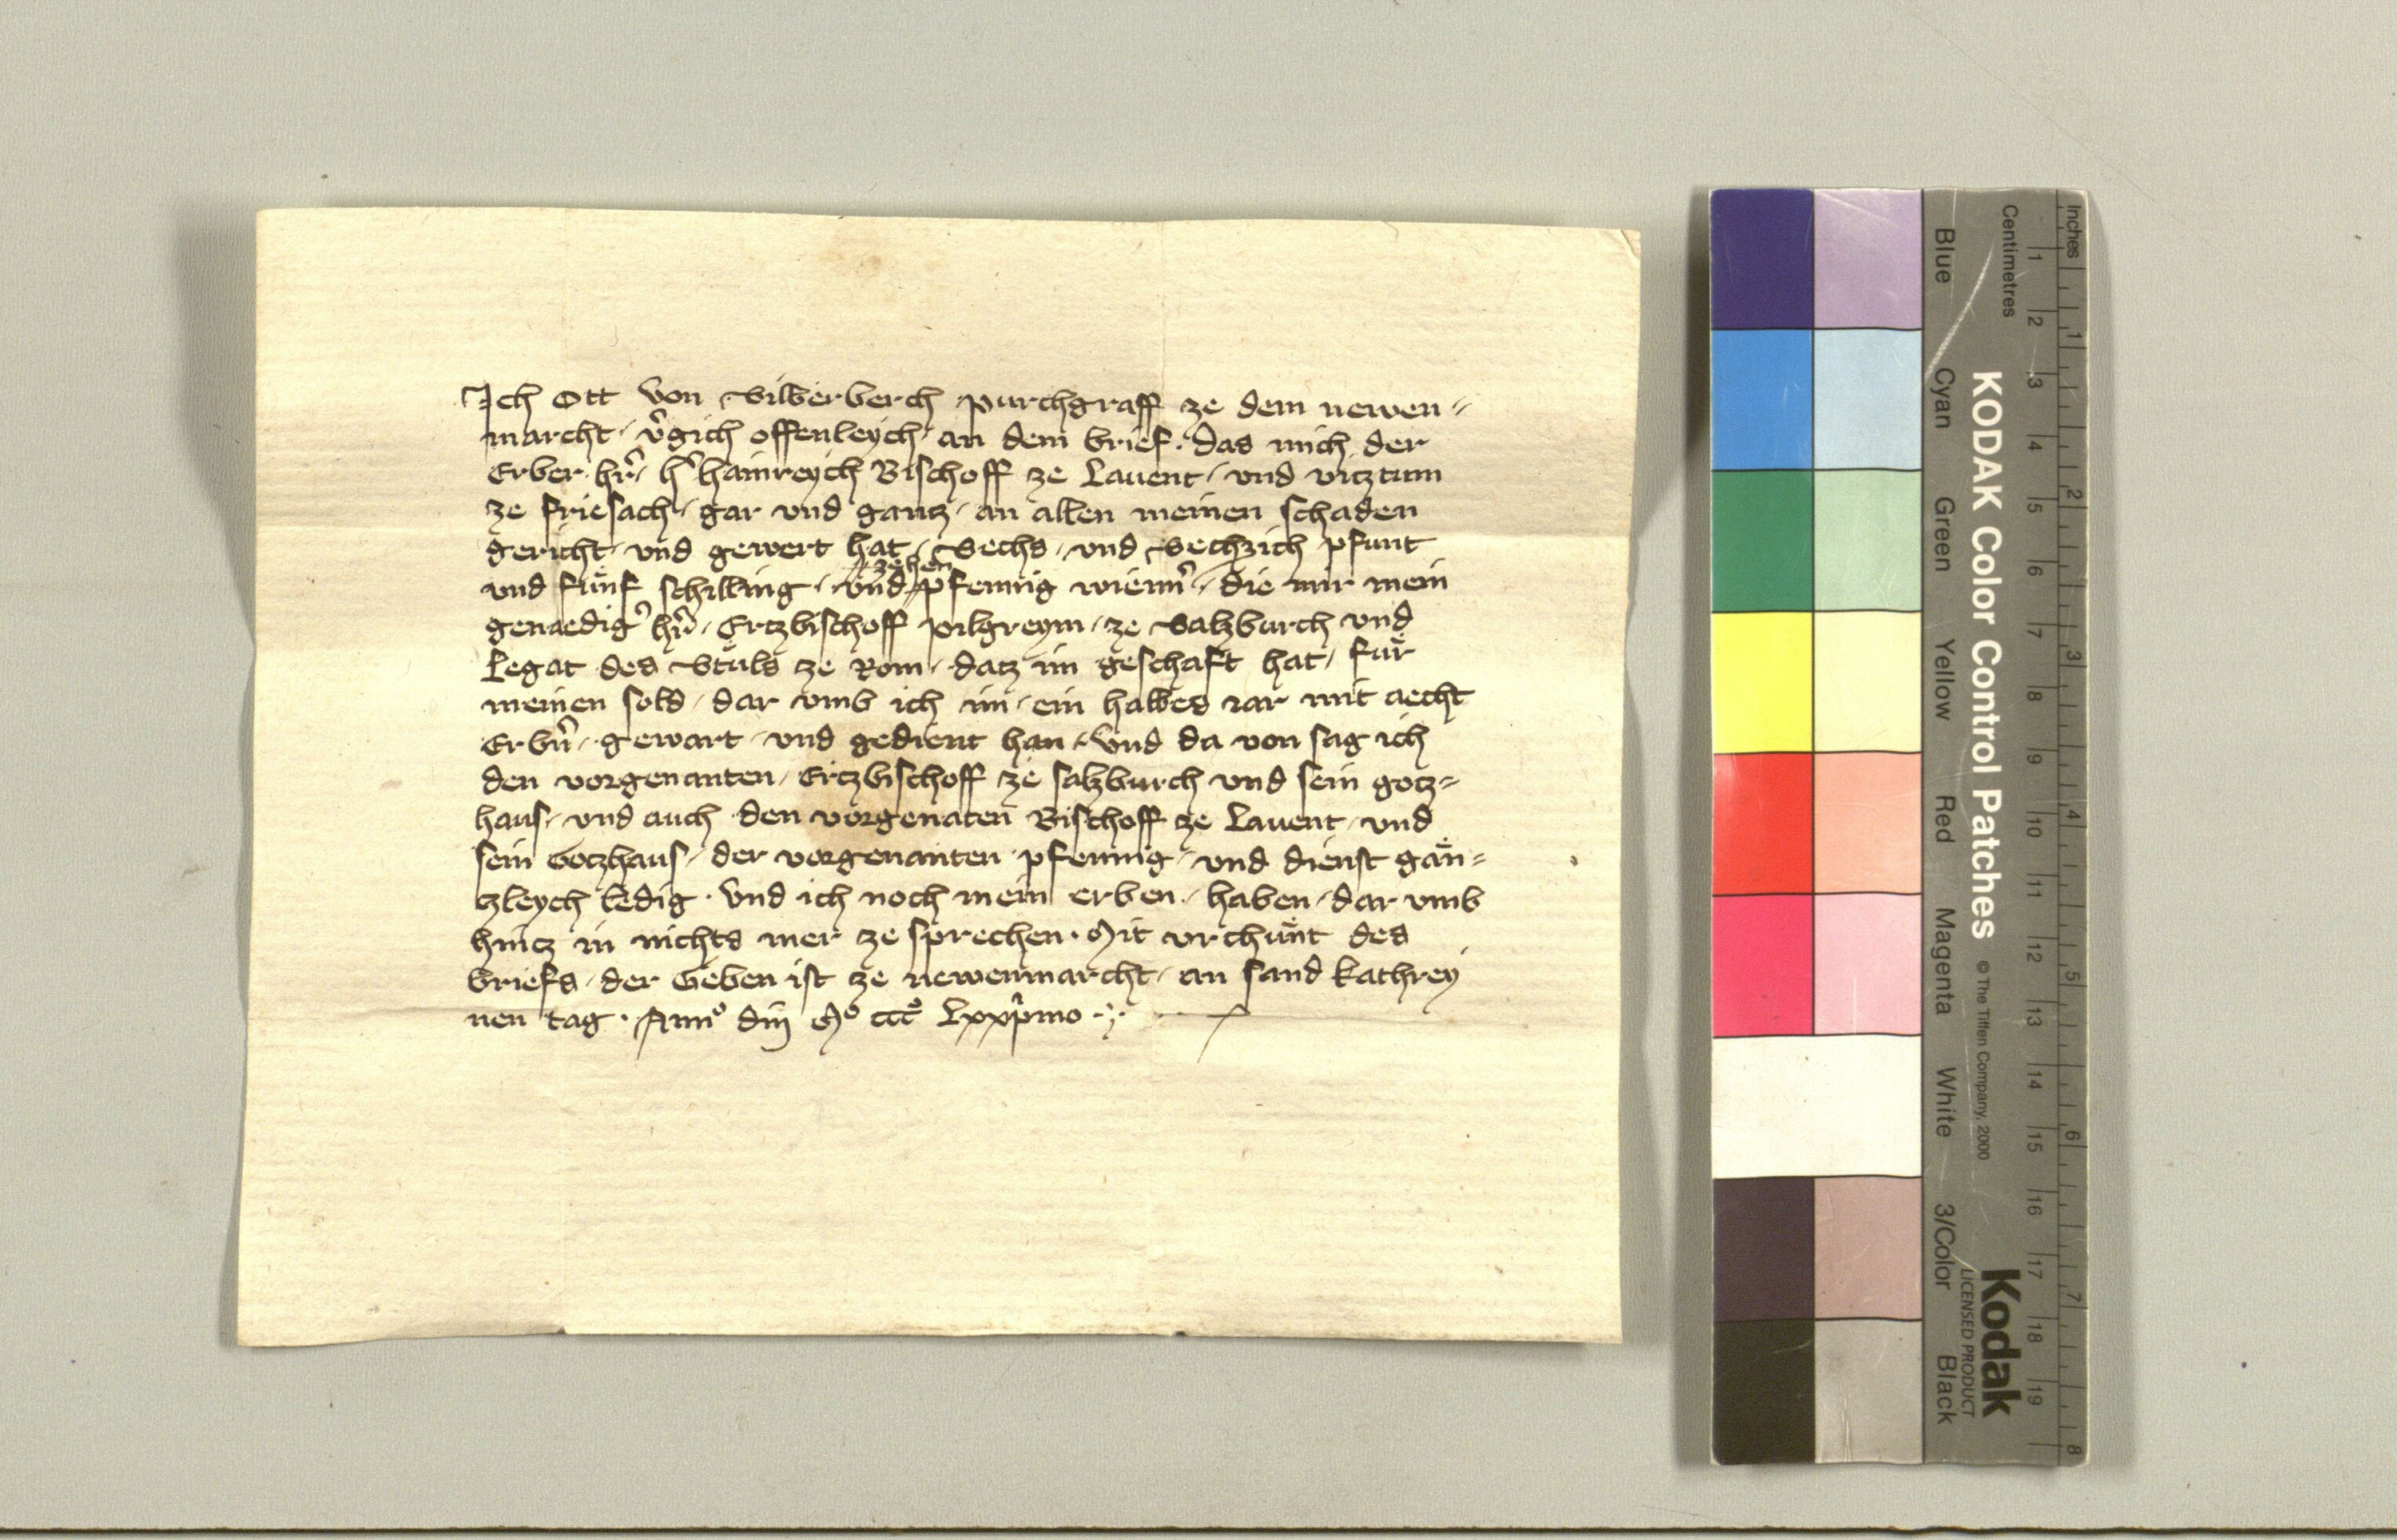 Ich Ott von Silberberch purchgraff ze dem newen⸗
marcht / v̂gich offenleych / an dem brief . Das mich der
Erber hr̂ / ĥ hainreych Bischoff ze Lauent / und vitztum
ze friesach / gar vnd gantz / an allen meinen schaden
gericht / vnd gewert hat / Sechs / vnd Sechzich pfunt
zehen
vnd fuͤnf schilling / vnd pfennig wienn̂ / die mir mein
genaedig̉ hr̂ / Ertzbischoff pilgreym / ze Salzburch vnd
Legat des Stuͤls ze Rom / datz im geschaft hat / fuͤr
meinen sold / dar vmb ich im / ein halbes iar mit aecht
Erbn̂ / gewart / vnd gedient han / Vnd da von sag ich
den vorgenanten / Ertzbischoff ze salzburch vnd sein gotz⸗
haus / vnd auch den vorgenaten Bischoff ze Lauent / vnd
sein Gotzhaus / der vorgenanten pfennig / vnd dienst gaͤn⸗
tzleych ledig . Vnd ich noch mein erben / haben / dar vmb
hintz in nichts mer ze sprechen . Mit vrchuͤnt des
briefs / der Geben ist ze newenmarcht / an sand kathrey
nen tag . Anno dnj Mo ccco Lxxp̂mo
Inches
Centimetres
1 2 3 4 5 6 7 8 9 10 11 12 13 14 15 16 17 18 19
1 2 3 4 5 6 7 8
KODAK Color Control Patches © The Tiffen Company, 2000 Kodak
LICENSED PRODUCT
Blue Cyan Green Yellow Red Magenta White 3/Color Black